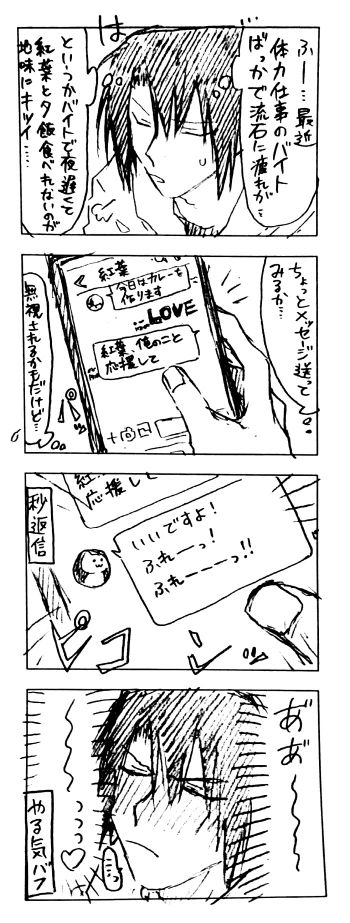 ふー…最近
体力仕事のバイト
ばっかで流石に
疲れが…
は
というかバイトで夜遅くて
紅葉と夕飯食べれないのが
地味にキツイ……
ちょっとメッセージ送って
みるか…
紅葉
今日はカレーを
作ります
LOVE
紅葉 俺のこと
応援して
無視されるかもだけど…
6
紅
応援し
いいですよ!
ふれーっ!
ふれーーーっ!!
秒返信
ピコン
ああ〜〜〜
っっっ♡
やる気バフ